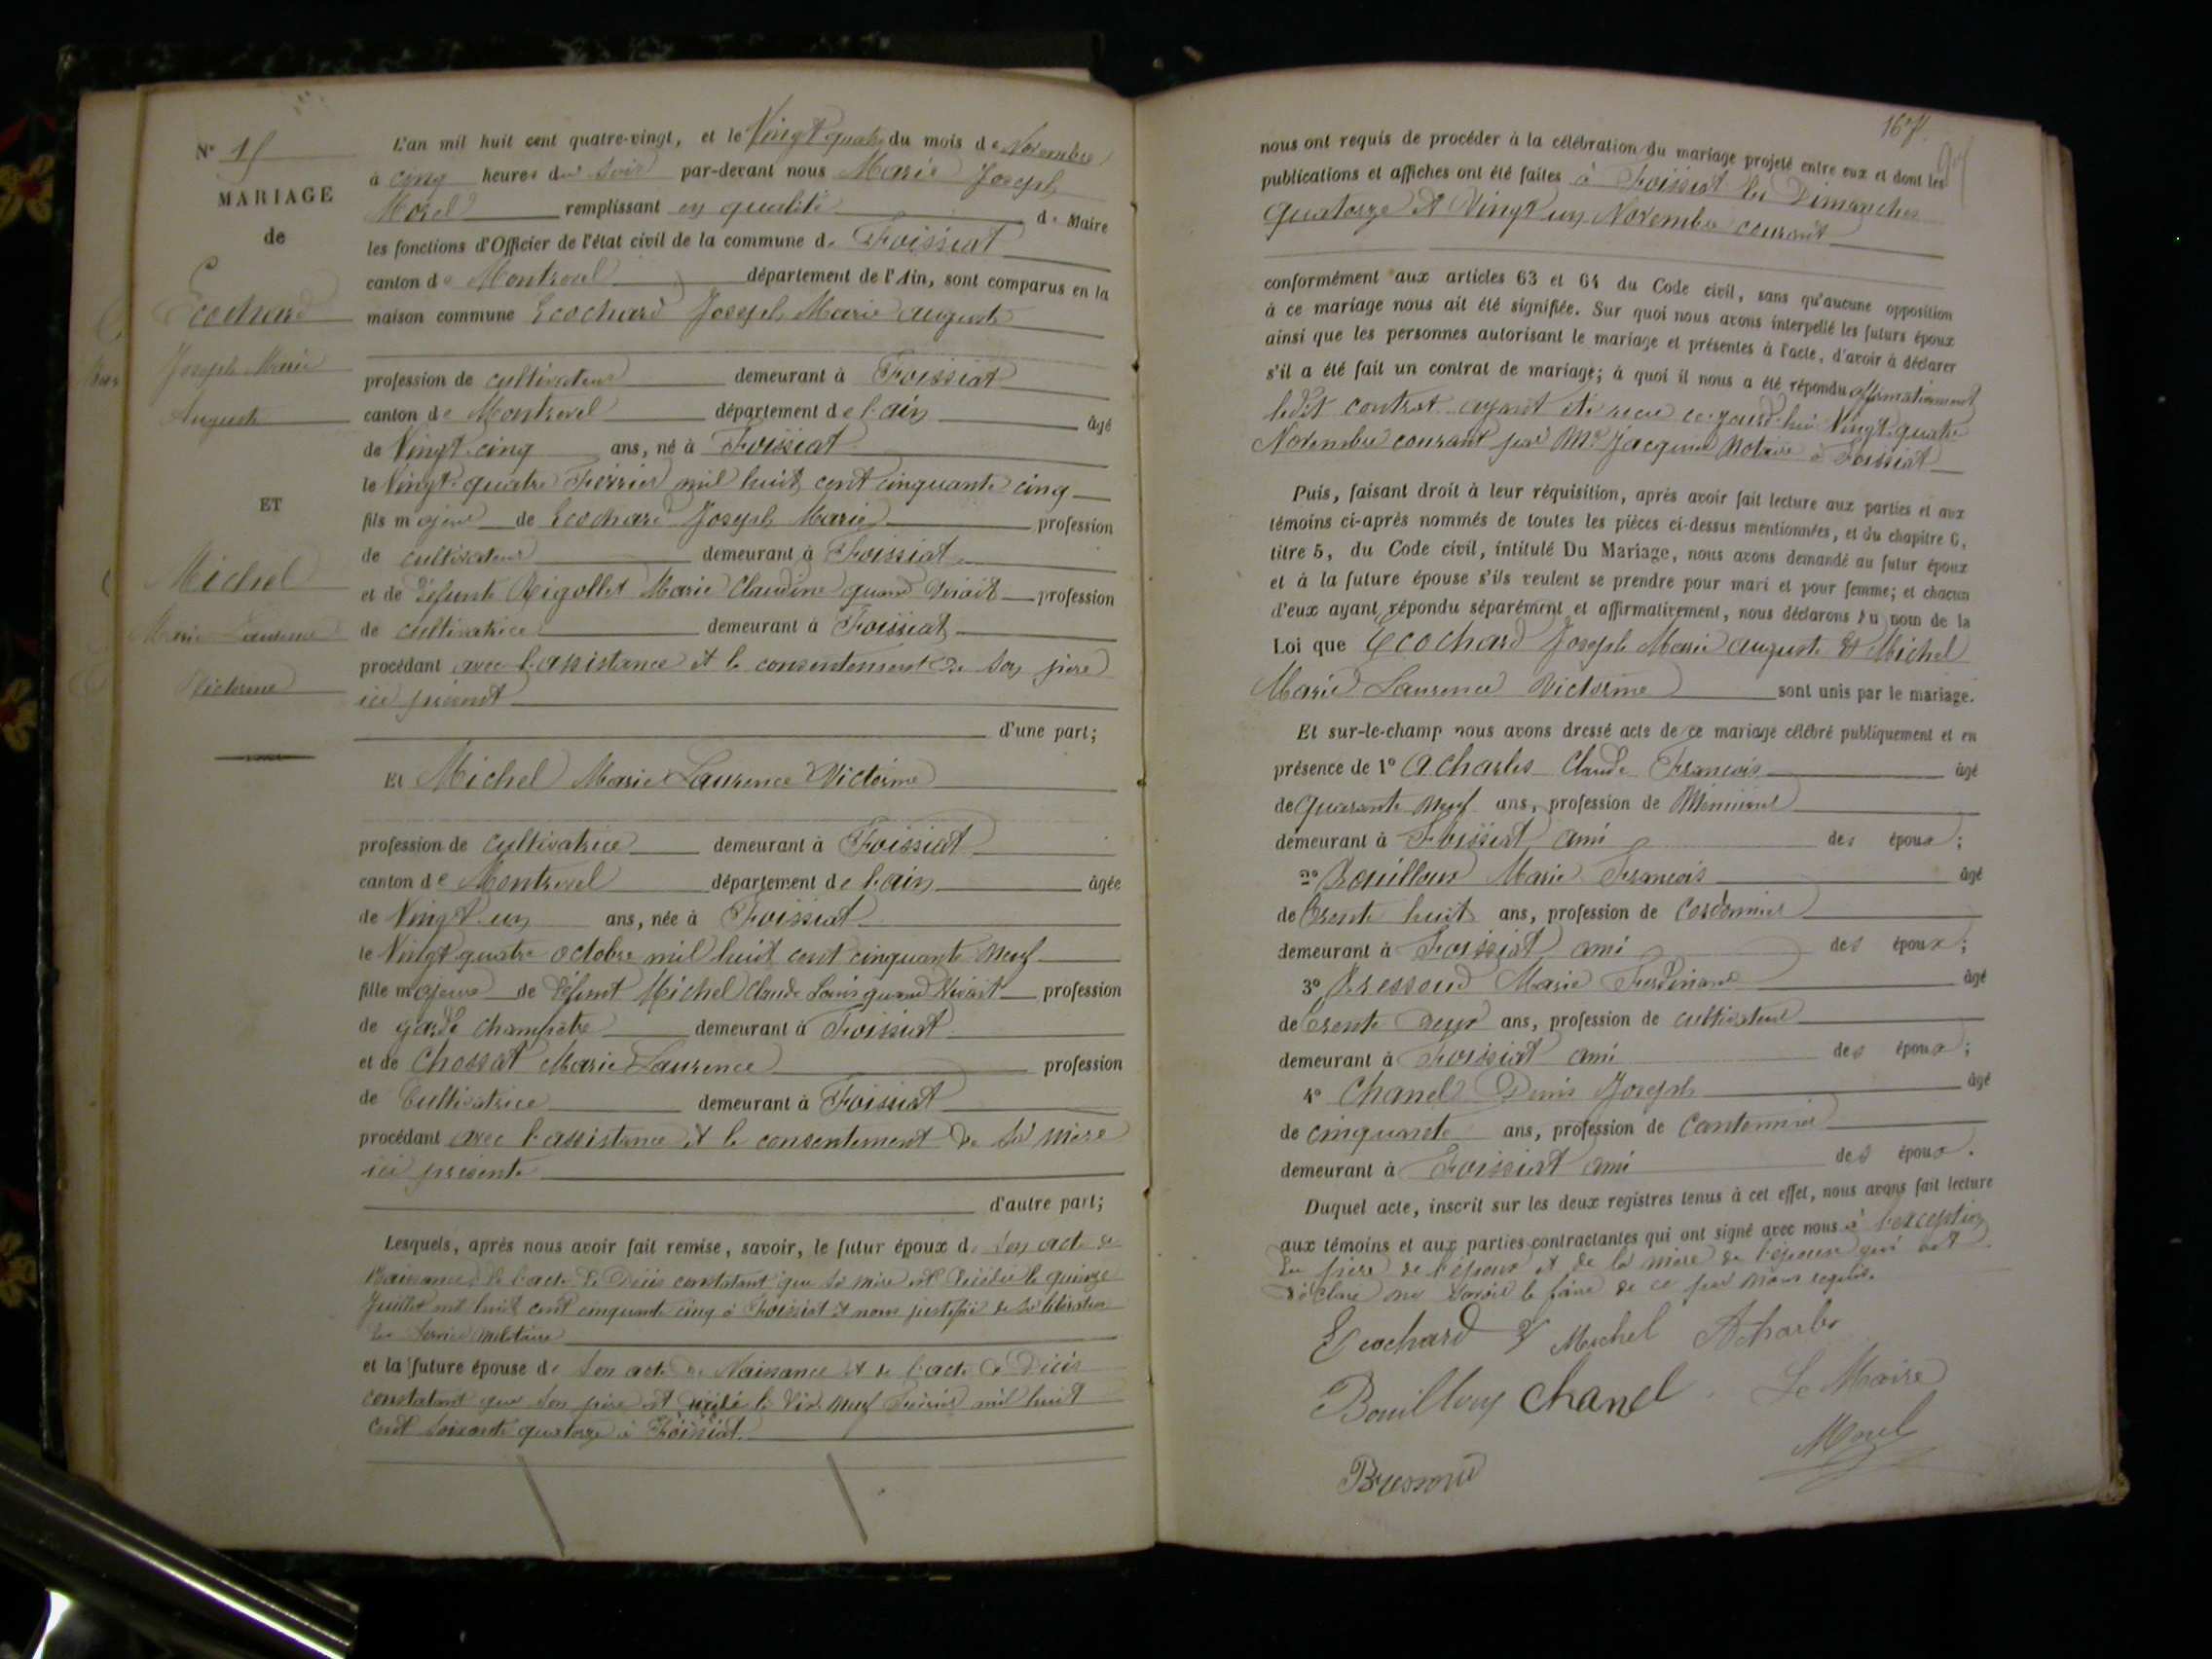 N° 15
MARIAGE
de
Ecochard
Joseph Marie
Auguste
ET
Michel
Marie Laurence
Victorine
L'an mil huit cent quatre-vingt, et le Vingt quatre du mois de Novembre
à cinq heures du soir par-devant nous Marie Joseph
Morel remplissant en qualité de Maire
les fonctions d'Officier de l'état civil de la commune de Foissiat
canton de Montrevel département de l'Ain, sont comparus en la
maison commune Ecochard Joseph Marie auguste
profession de cultivateur demeurant à Foissiat
canton de Montrevel département de l'ain âgé
de Vingt cinq ans, né à Foissiat
le Vingt quatre Février mil huit cent cinquante cinq
fils majeur de Ecochard Joseph Marie profession
de cultivateur demeurant à Foissiat
et de défunte Rigollet Marie Claudine quand vivait profession
de cultivatrice demeurant à Foissiat
procédant avec l'assistance et le consentement de son père
ici présent
d'une part;
Et Michel Marie Laurence Victorine
profession de cultivatrice demeurant à Foissiat
canton de Montrevel département de l'ain âgée
de Vingt un ans, née à Foissiat
le Vingt quatre octobre mil huit cent cinquante neuf
fille majeure de défunt Michel Claude Louis quand vivait profession
de garde champêtre demeurant à Foissiat
et de Chossat Marie Laurence profession
de Cultivatrice demeurant à Foissiat
procédant avec l'assistance et le consentement de sa mère
ici présente
d'autre part;
Lesquels, après nous avoir fait remise, savoir, le futur époux de son acte de
Naissance de l'acte de Décès constatant que sa mère est décédée le quinze
Juillet mil huit cent cinquante cinq à Foissiat et nous justifie de sa libération
du service militaire
et la future épouse de son acte de Naissance et de l'acte de Décès
constatant que son père est décédé le dix neuf Février mil huit
cent soixante quatorze à Foissiat.
167
nous ont requis de procéder à la célébration du mariage projeté entre eux et dont les
publications et affiches ont été faites à Foissiat les Dimanches
quatorze et Vingt un Novembre courant
conformément aux articles 63 et 64 du Code civil, sans qu'aucune opposition
à ce mariage nous ait été signifiée. Sur quoi nous avons interpellé les futurs époux
ainsi que les personnes autorisant le mariage et présentes à l'acte, d'avoir à déclarer
s'il a été fait un contrat de mariage; à quoi il nous a été répondu affirmativement
ledit contrat ayant été recu ce jourd'hui Vingt quatre
Novembre courant par Me Jacquand Notaire à Foissiat
Puis, faisant droit à leur réquisition, après avoir fait lecture aux parties et aux
témoins ci-après nommés de toutes les pièces ci-dessus mentionnées, et du chapitre 6,
titre 5, du Code civil, intitulé Du Mariage, nous avons demandé au futur époux
et à la future épouse s'ils veulent se prendre pour mari et pour femme; et chacun
d'eux ayant répondu séparément et affirmativement, nous déclarons au nom de la
Loi que Ecochard Joseph Marie auguste et Michel
Marie Laurence Victorine sont unis par le mariage.
Et sur-le-champ nous avons dressé acte de ce mariage célébré publiquement et en
présence de 1° Acharles Claude François âgé
de quarante neuf ans, profession de Menuisier
demeurant à Foissiat ami des époux;
2° Bouilloux Marie François âgé
de trente huit ans, profession de Cordonnier
demeurant à Foissiat ami des époux;
3° Bressoud Marie Ferdinand âgé
de trente deux ans, profession de cultivateur
demeurant à Foissiat ami des époux;
4° Chanel Denis Joseph âgé
de cinquante ans, profession de Cantonnier
demeurant à Foissiat ami des époux.
Duquel acte, inscrit sur les deux registres tenus à cet effet, nous avons fait lecture
aux témoins et aux parties contractantes qui ont signé avec nous à l'exception
du père de l'époux et de la mère de l'épouse qui ont
déclaré ne savoir le faire de ce par nous requis.
Ecochard Michel Acharles
Bouilloux Chanel Le Maire
Morel
Bressoud